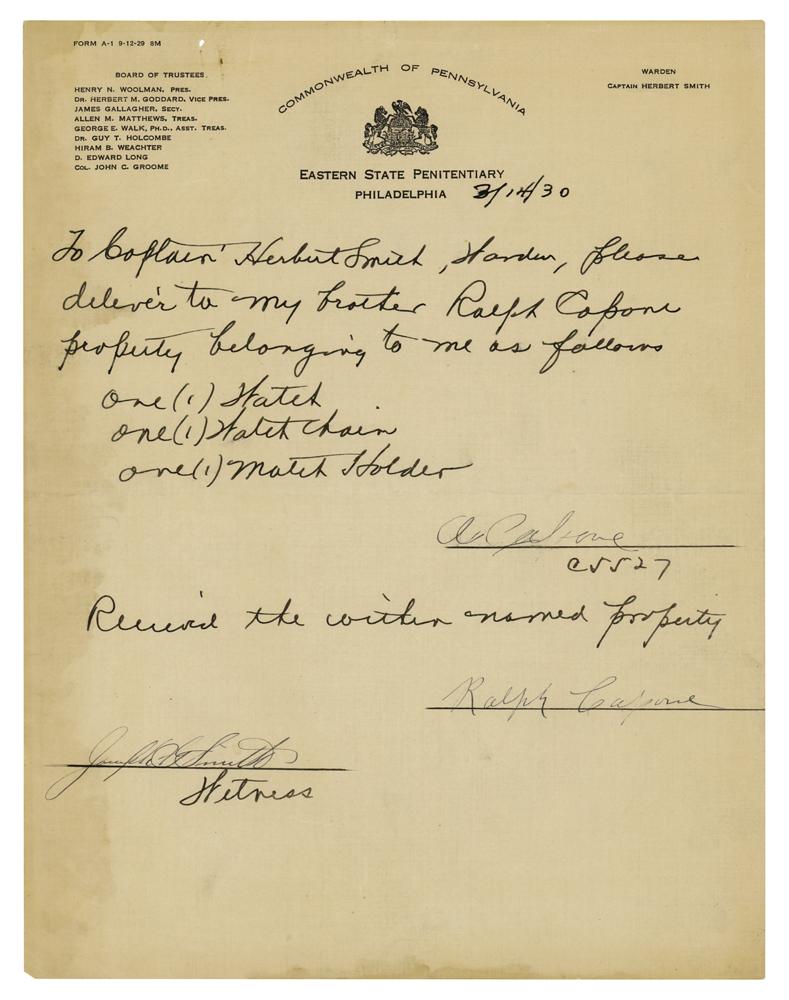 FORM A-1 9-12-29 8M
BOARD OF TRUSTEES.
HENRY N. WOOLMAN, PRES.
DR. HERBERT M. GODDARD, VICE PRES.
JAMES GALLAGHER, SECY.
ALLEN M. MATTHEWS, TREAS.
GEORGE E. WALK, PH.D., ASST. TREAS.
DR. GUY T. HOLCOMBE
HIRAM B. WEACHTER
D. EDWARD LONG
COL. JOHN C. GROOME
COMMONWEALTH OF PENNSYLVANIA
EASTERN STATE PENITENTIARY
PHILADELPHIA 3/14/30
WARDEN
CAPTAIN HERBERT SMITH
To Captain Herbert Smith, Warden, please
deliver to my brother Ralph Capone
property belonging to me as follows
one (1) Watch
one (1) Watch Chain
one (1) Match Holder
A. Capone
C5527
Received the within named property
Ralph Capone
Smith
Witness